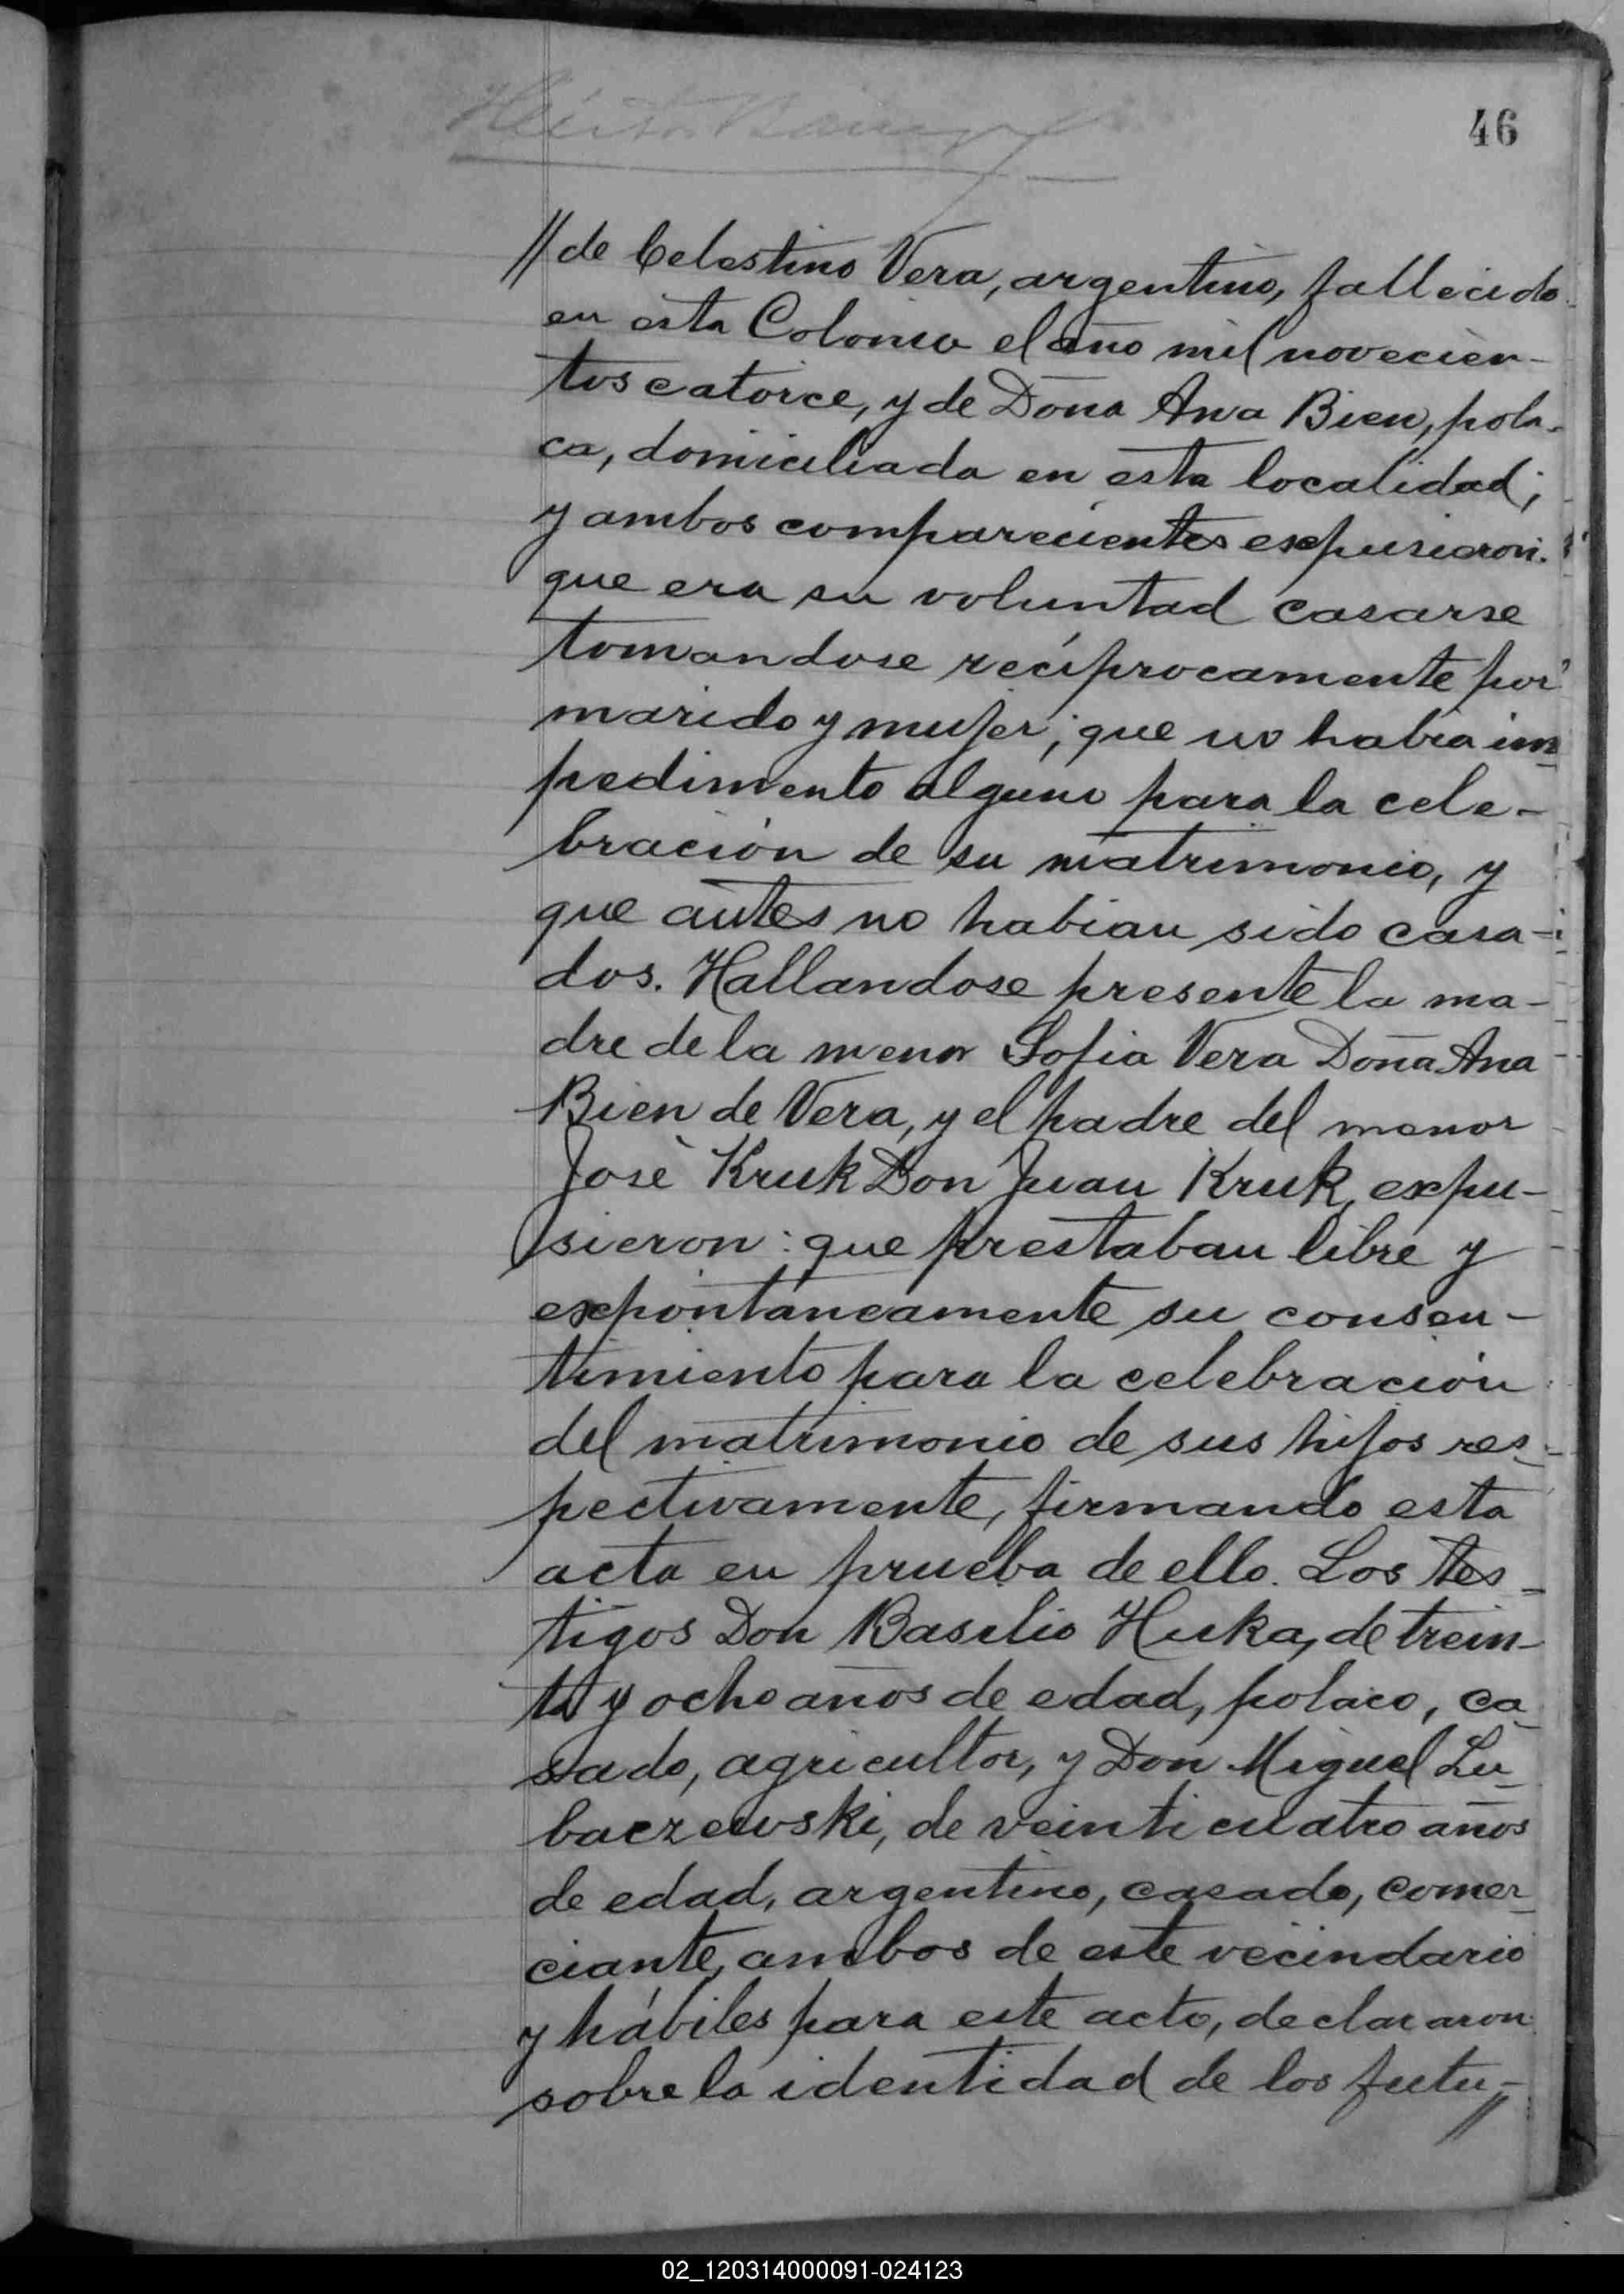 46
// de Celestino Vera, argentino, fallecido
en esta Colonia el año mil novecien-
tos catorce, y de Doña Ana Bien, pola-
ca, domiciliada en esta localidad;
y ambos comparecientes expusieron:
que era su voluntad casarse
tomandose recíprocamente por
marido y mujer; que no habia im
pedimento alguno para la cele-
bración de su matrimonio, y
que antes no habian sido casa-
dos. Hallandose presente la ma-
dre de la menor Sofia Vera Doña Ana
Bien de Vera, y el padre del menor
José Kruk Don Juan Kruk, expu-
sieron: que prestaban libre y
expontaneamente su consen-
timiento para la celebración
del matrimonio de sus hijos res-
pectivamente, firmando esta
acta en prueba de ello. Los tes-
tigos Don Basilio Huka, de trein-
ta y ocho años de edad, polaco, ca-
sado, agricultor, y Don Miguel Lu-
baczewski, de veinticuatro años
de edad, argentino, casado, comer-
ciante, ambos de este vecindario
y hábiles para este acto, declararon
sobre la identidad de los futu-//
02_120314000091-024123